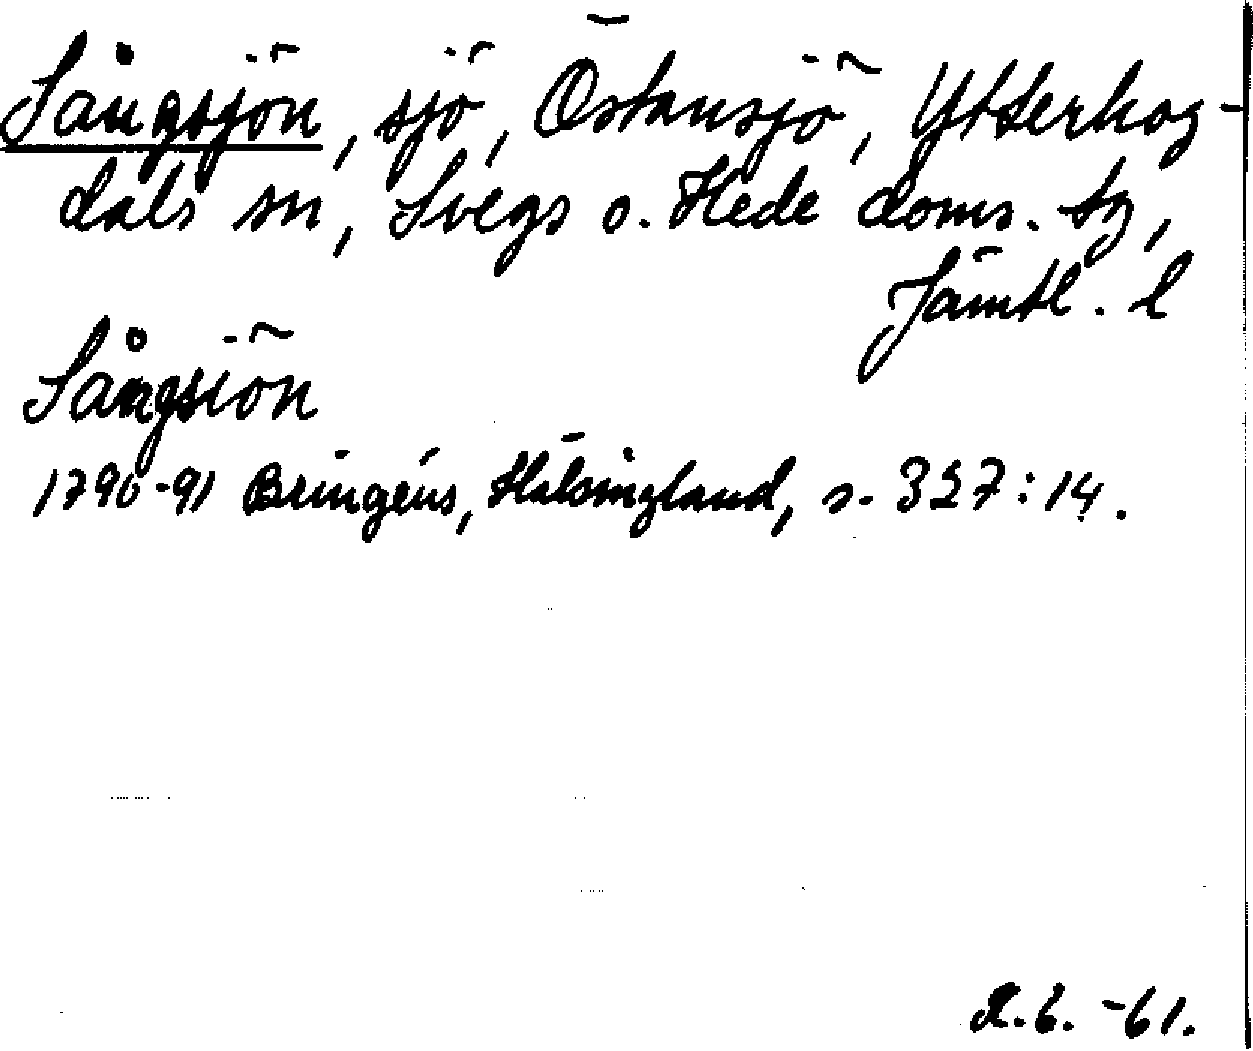 Sångsjön, sjö, Östansjö, Ytterhog-
dals sn, Svegs o. Hede doms. tg,
Jämtl. l
Sångsiön
1790-91 Bringéus, Hälsingland, s. 327:14.
R.B. -61.